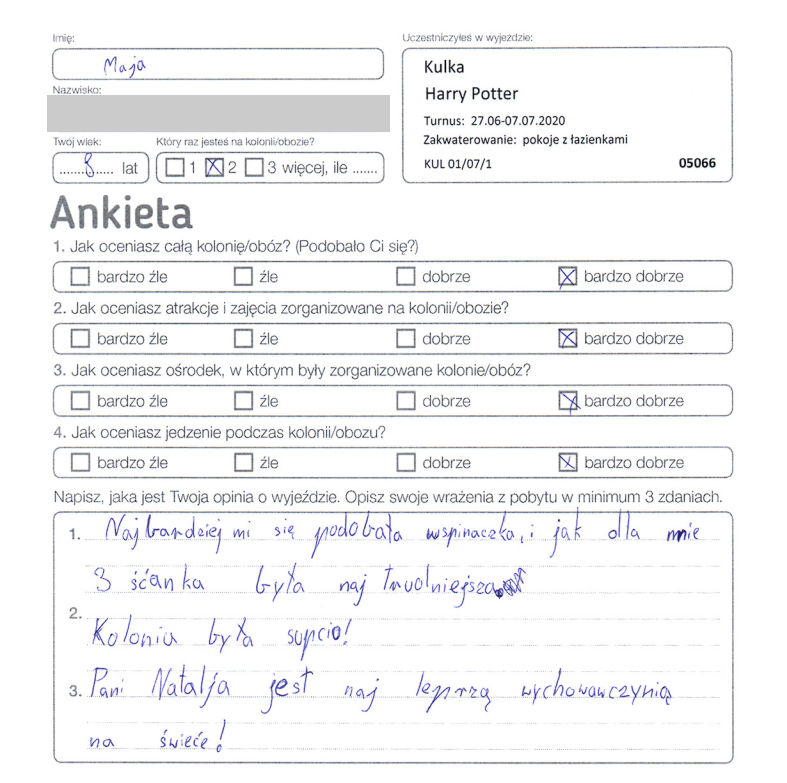 Imię:
Maja
Nazwisko:
Twój wiek:
Który raz jesteś na kolonii/obozie?
.......8..... lat
1 2 3 więcej, ile .......
Uczestniczyłeś w wyjeździe:
Kulka
Harry Potter
Turnus: 27.06-07.07.2020
Zakwaterowanie: pokoje z łazienkami
KUL 01/07/1 05066
Ankieta
1. Jak oceniasz całą kolonię/obóz? (Podobało Ci się?)
bardzo źle źle dobrze bardzo dobrze
2. Jak oceniasz atrakcje i zajęcia zorganizowane na kolonii/obozie?
bardzo źle źle dobrze bardzo dobrze
3. Jak oceniasz ośrodek, w którym były zorganizowane kolonie/obóz?
bardzo źle źle dobrze bardzo dobrze
4. Jak oceniasz jedzenie podczas kolonii/obozu?
bardzo źle źle dobrze bardzo dobrze
Napisz, jaka jest Twoja opinia o wyjeździe. Opisz swoje wrażenia z pobytu w minimum 3 zdaniach.
1. Najbardziej mi się podobała wspinaczka, i jak dla mnie
3 śćanka była naj trudniejsza
2.
Kolonia była supcio!
3. Pani Natalja jest naj leprzą wychowawczynią
na świecie!